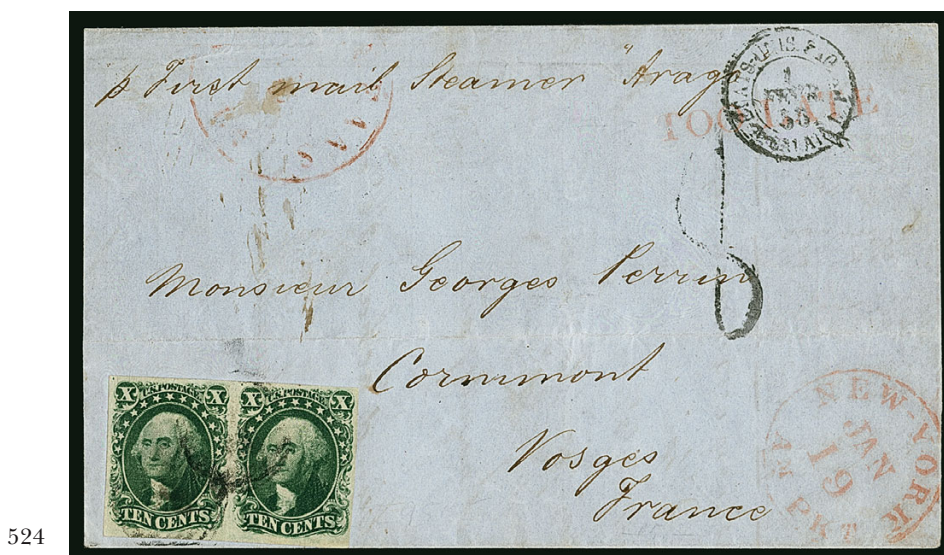 p First mail Steamer "Arago
TOO LATE
1
Monsieur Georges Perrin
Cornimont
Vosges
France
NEW-YORK
JAN
19
AM. PKT
X U.S. POSTAGE X
TEN CENTS
X U.S. POSTAGE X
TEN CENTS
524